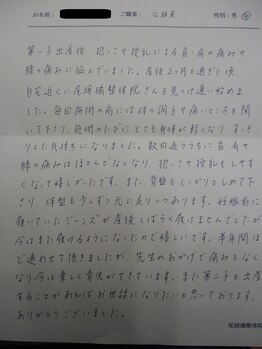 お名前： ご職業： 公務員 性別：男 女
第一子出産後、抱っこや授乳による首・肩の痛みや
膝の痛みに悩んでいました。産後2ヶ月を過ぎた頃
自宅近くに尾頭橋整体院さんを見つけ通い始め
ました。毎回施術の前には体の調子や痛いところを聞
いて下さり、施術のたびにとても身体が軽くなり、すっき
りした気持ちになりました。数回通ううちに首・肩や
膝の痛みはほとんどなくなり、抱っこや授乳もしやす
くなって嬉しかったです。また、骨盤もしっかりとしめて下
さり、体型も少しずつ元に戻りつつあります。妊娠前に
履いていたジーンズが産後しばらく履けませんでしたが
今はまた履けるようになったので嬉しいです。半年間ほ
ど通わせて頂きましたが、先生のおかげで痛みもなく
なり今は楽しく育児ができています。また第二子を出産
することがあればお世話になりたいと思っております。
ありがとうございました。
尾頭橋整体院